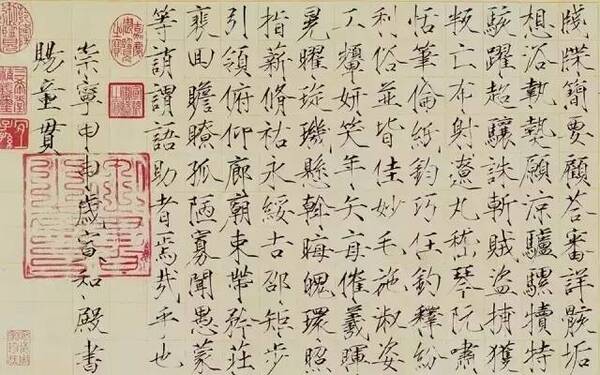 牋牒簡要顧答審詳骸垢
想浴執熱願涼驢騾犢特
駭躍超驤誅斬賊盜捕獲
叛亡布射遼丸嵇琴阮嘯
恬筆倫紙鈞巧任釣釋紛
利俗並皆佳妙毛施淑姿
工顰妍笑年矢每催羲暉
晃曜璇璣懸斡晦魄環照
指薪脩祜永綏吉邵矩步
引領俯仰廊廟束帶矜莊
裵回瞻眺孤陋寡聞愚蒙
等誚謂語助者焉哉乎也
崇寧甲申歲宣和殿書
賜童貫